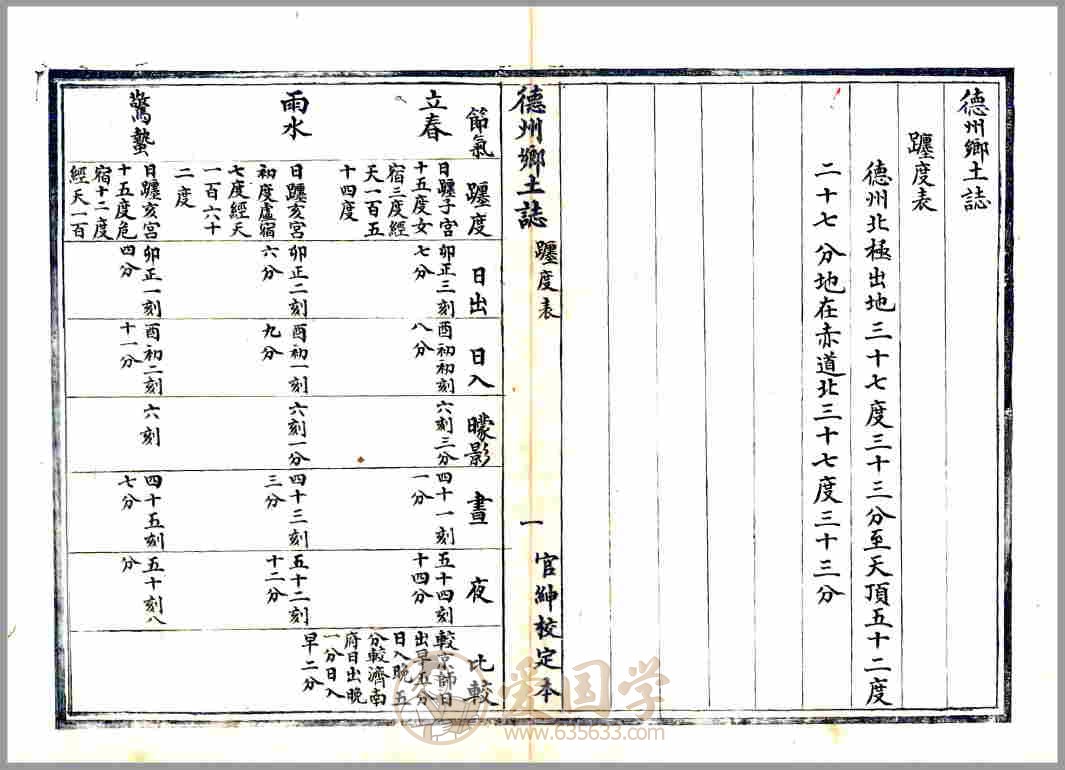 德州鄉土誌
躔度表
德州北極出地三十七度三十三分至天頂五十二度
二十七分地在赤道北三十七度三十三分
德州鄉土誌
躔度表
一
官紳校定本
節氣
躔度
日出
日入
曚影
晝
夜
比較
立春
日躔子宮
十五度女
宿三度經
天一百五
十四度
卯正三刻
七分
酉初初刻
八分
六刻三分
四十一刻
一分
五十四刻
十四分
較京師日
出早五分
日入晚五
分較濟南
府日出晚
一分日入
早二分
雨水
日躔亥宮
初度虛宿
七度經天
一百六十
二度
卯正二刻
六分
酉初一刻
九分
六刻一分
四十三刻
三分
五十二刻
十二分
驚蟄
日躔亥宮
十五度危
宿十二度
經天一百
卯正一刻
四分
酉初二刻
十一分
六刻
四十五刻
七分
五十刻八
分
爱国学
www.635633.com